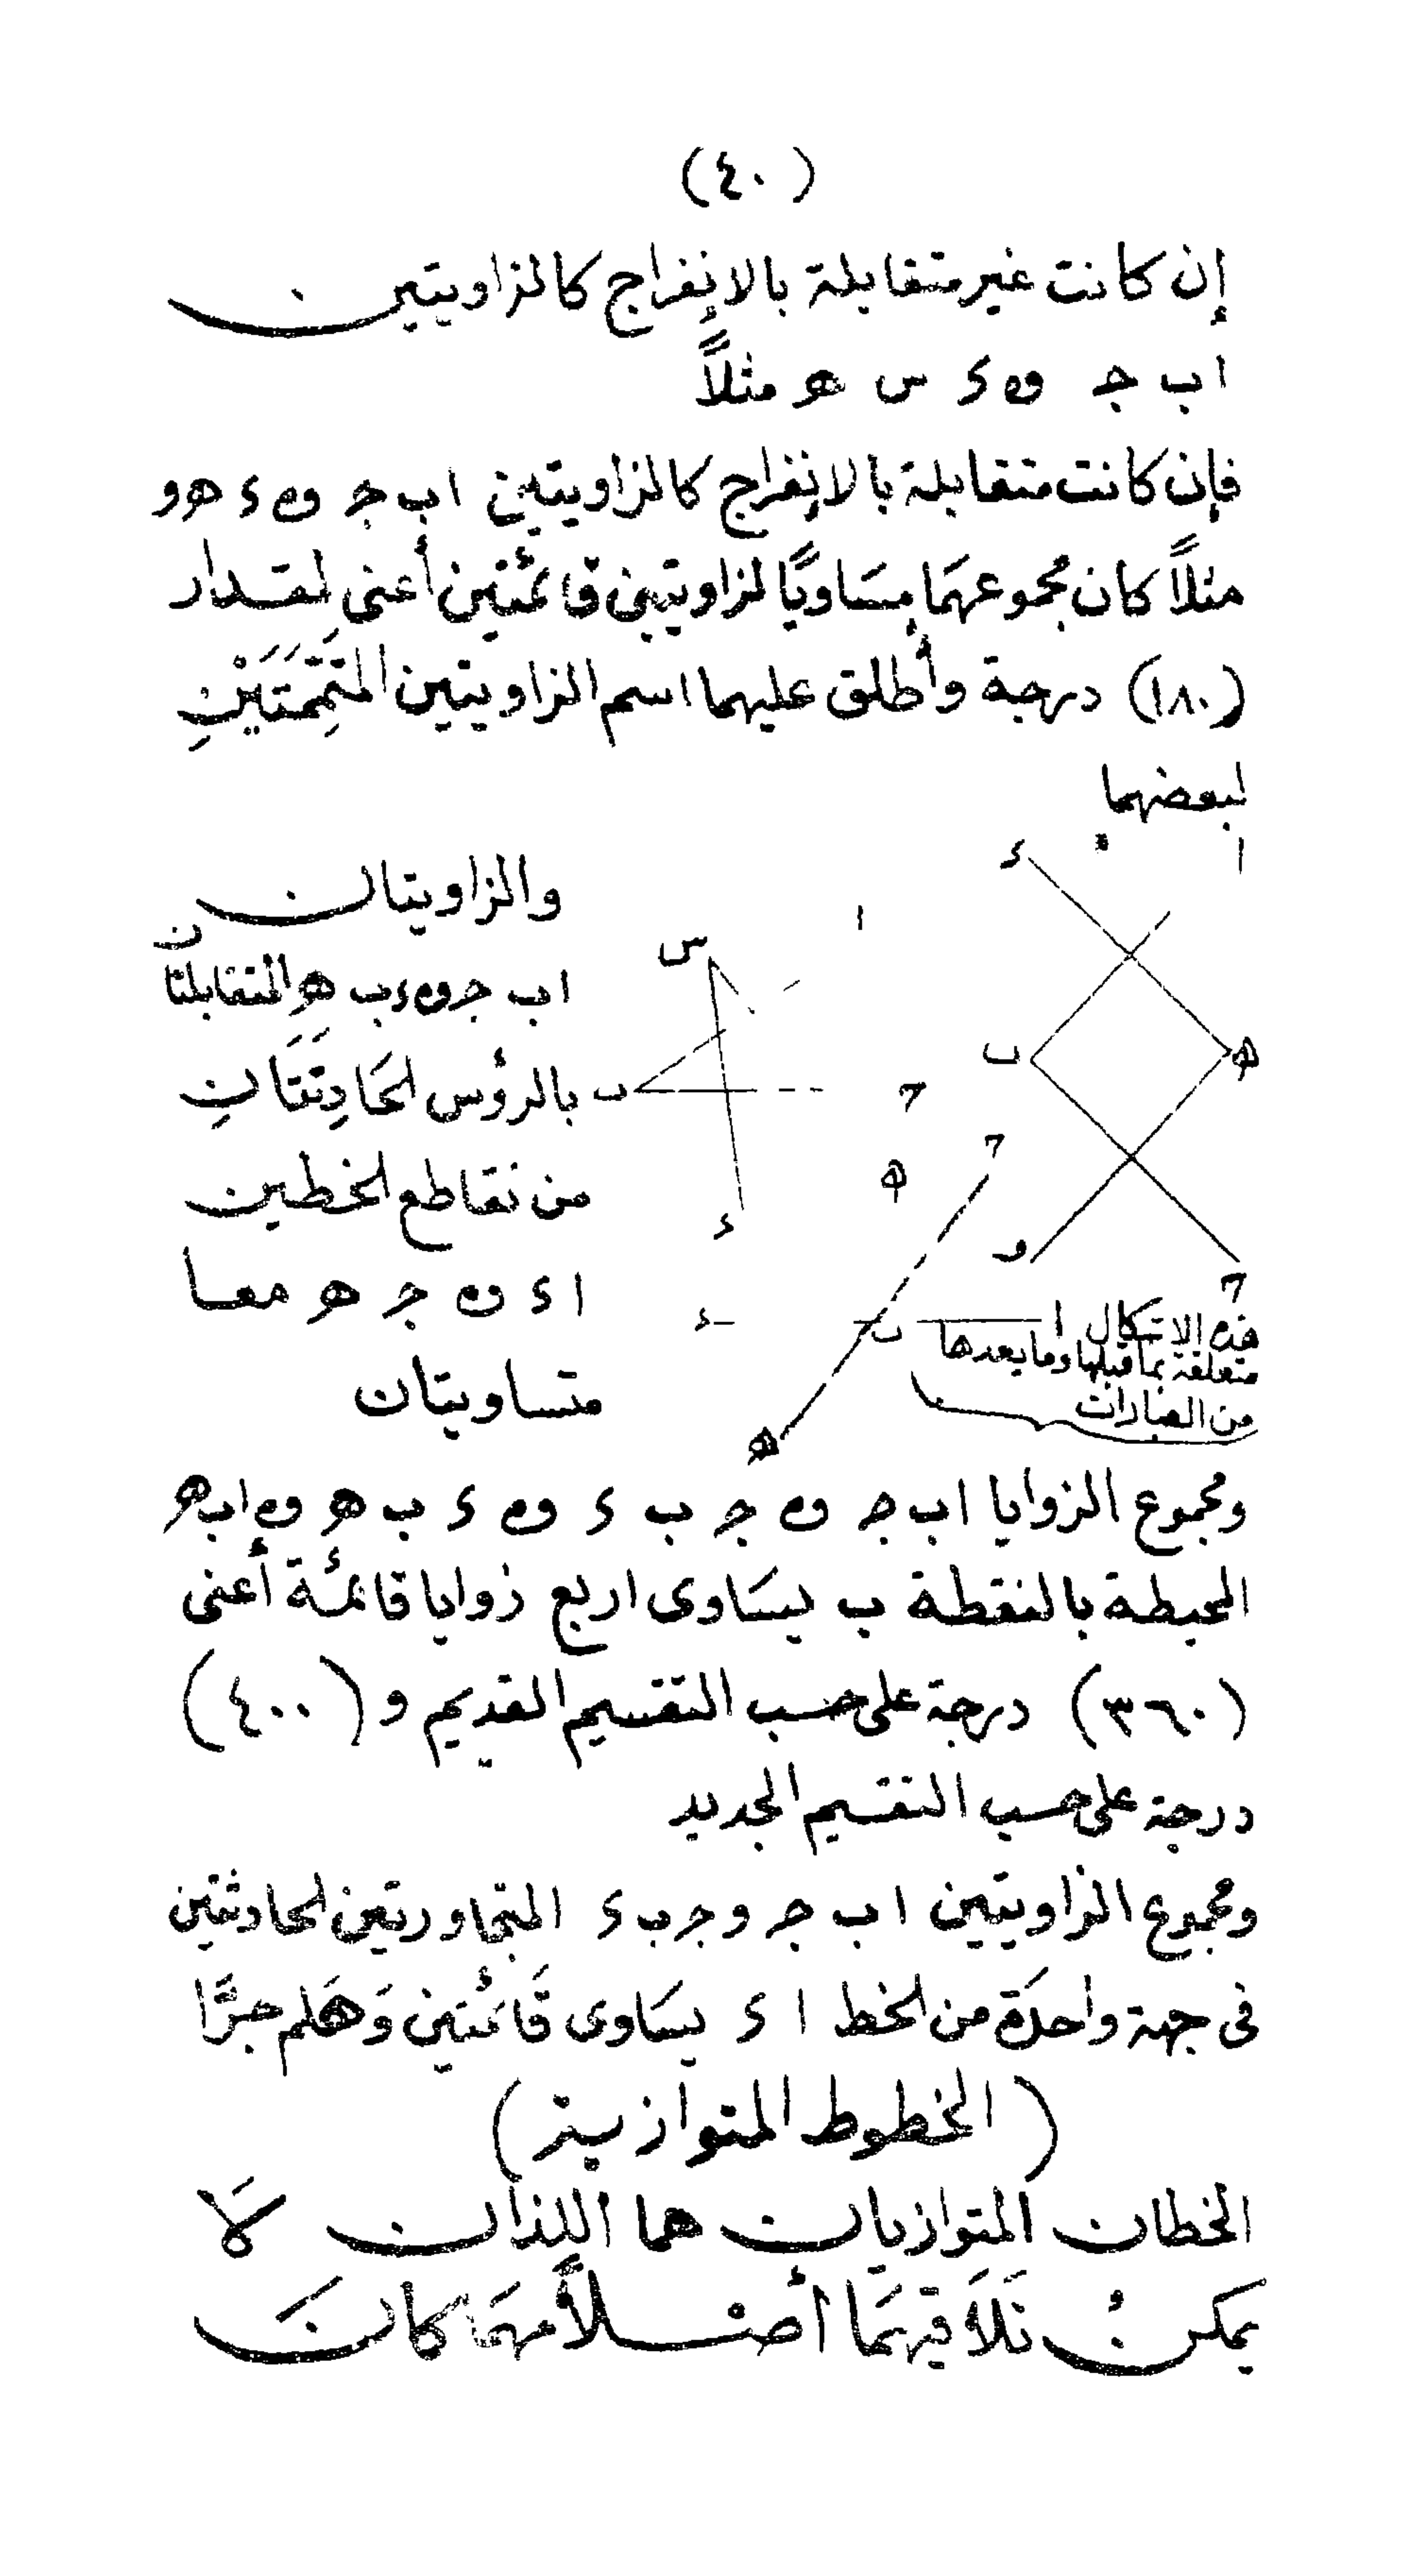 (٤٠)
إن كانت غير متقابلة بالإنفراج كالزاويتين
ا ب ج و ه ء س هـ مثلاً
فإن كانت متقابلة بالإنفراج كالزاويتين ا ب ج و ه ء هـ و
مثلاً كان مجموعهَما مسَاويًا لزاويتين قائمتين أعنى لمقدار
(١٨٠) درجة وأطلق عليهما اسم الزاويتين المتَمِّمَتَيْنِ
لبعضهما
ا
ء
ب
هـ
و
ج
ا
س
ب
ج
ء
هـ
ج
ء
ب
ا
هـ
هذه الاشكال
متعلقة بما قبلها وما بعدها
من العبارات
والزاويتان
ا ب ج و ه ء ب هـ المتقابلتان
بالرؤس الحَادِثَتَانِ
من تقاطع الخطين
ا ء و ه ج هـ معا
متساويتان
ومجموع الزوايا ا ب ج و ه ج ب ء و ه ء ب هـ و ه ا ب هـ
المحيطة بالنقطة ب يسَاوى اربع زوايا قائمة أعنى
(٣٦٠) درجة على حسب التقسيم القديم و (٤٠٠)
درجة على حسب التقسيم الجديد
ومجموع الزاويتين ا ب ج و ج ب ء المتجاورتين الحادثتين
فى جهة واحدَة من الخط ا ء يسَاوى قَائمتين وَهَلم جرًّا
(الخطوط المتوازية)
الخطان المتوازيان هما اللذان لَا
يمكنُ تَلَاقيهمَا أصْلاً مهمَا كانَ